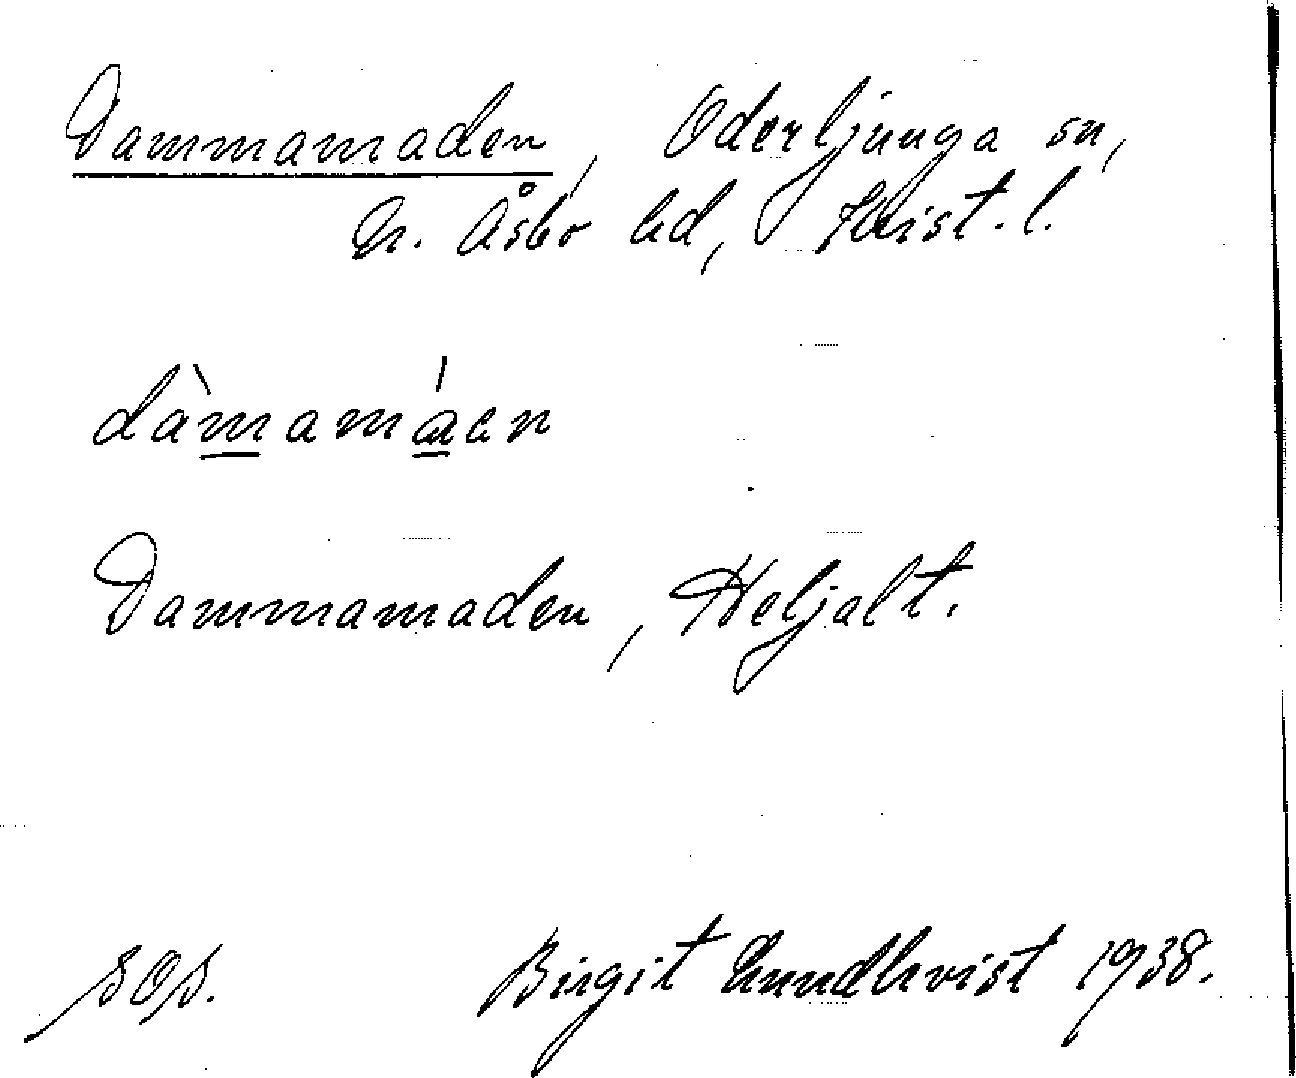 Dammamaden, Oderljunga sn,
N. Åsbo hd, Krist. l.
dàmamáen
Dammamaden, Heljalt.
SOS. Birgit Lundkvist 1938.